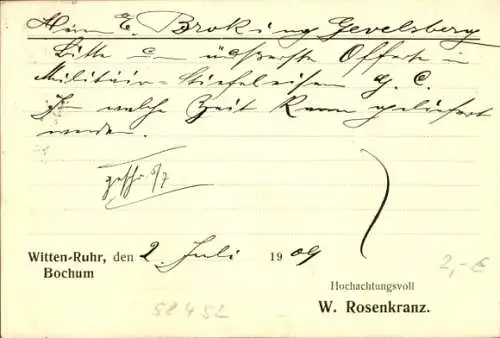 Herrn E. Broking Gevelsberg
Bitte um äußerste Offerte in
Militär-Stiefeleisen G. C.
In welche Zeit kann geliefert
werden.
geschr. 5/7
Witten-Ruhr, den 2 Juli 1909
Bochum
2,- €
Hochachtungsvoll
W. Rosenkranz.
58452